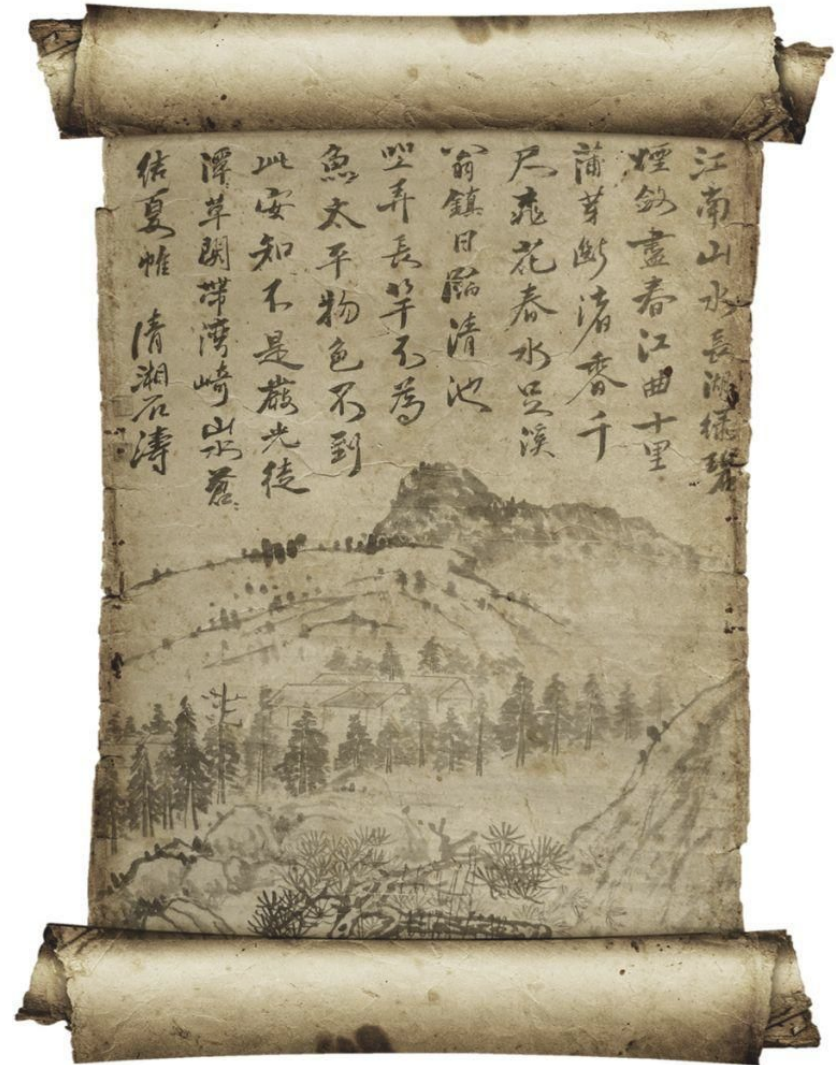 江南山水長湖綠
煙鈎盡春江曲十里
蒲芽斷渚香千
尺飛花春水足溪
翁鎮日臨清池
坐弄長竿不為
魚太平物色不到
此安知不是嚴光徒
潭草閑帶灣崎山水蒼
結夏帷 清湘石濤